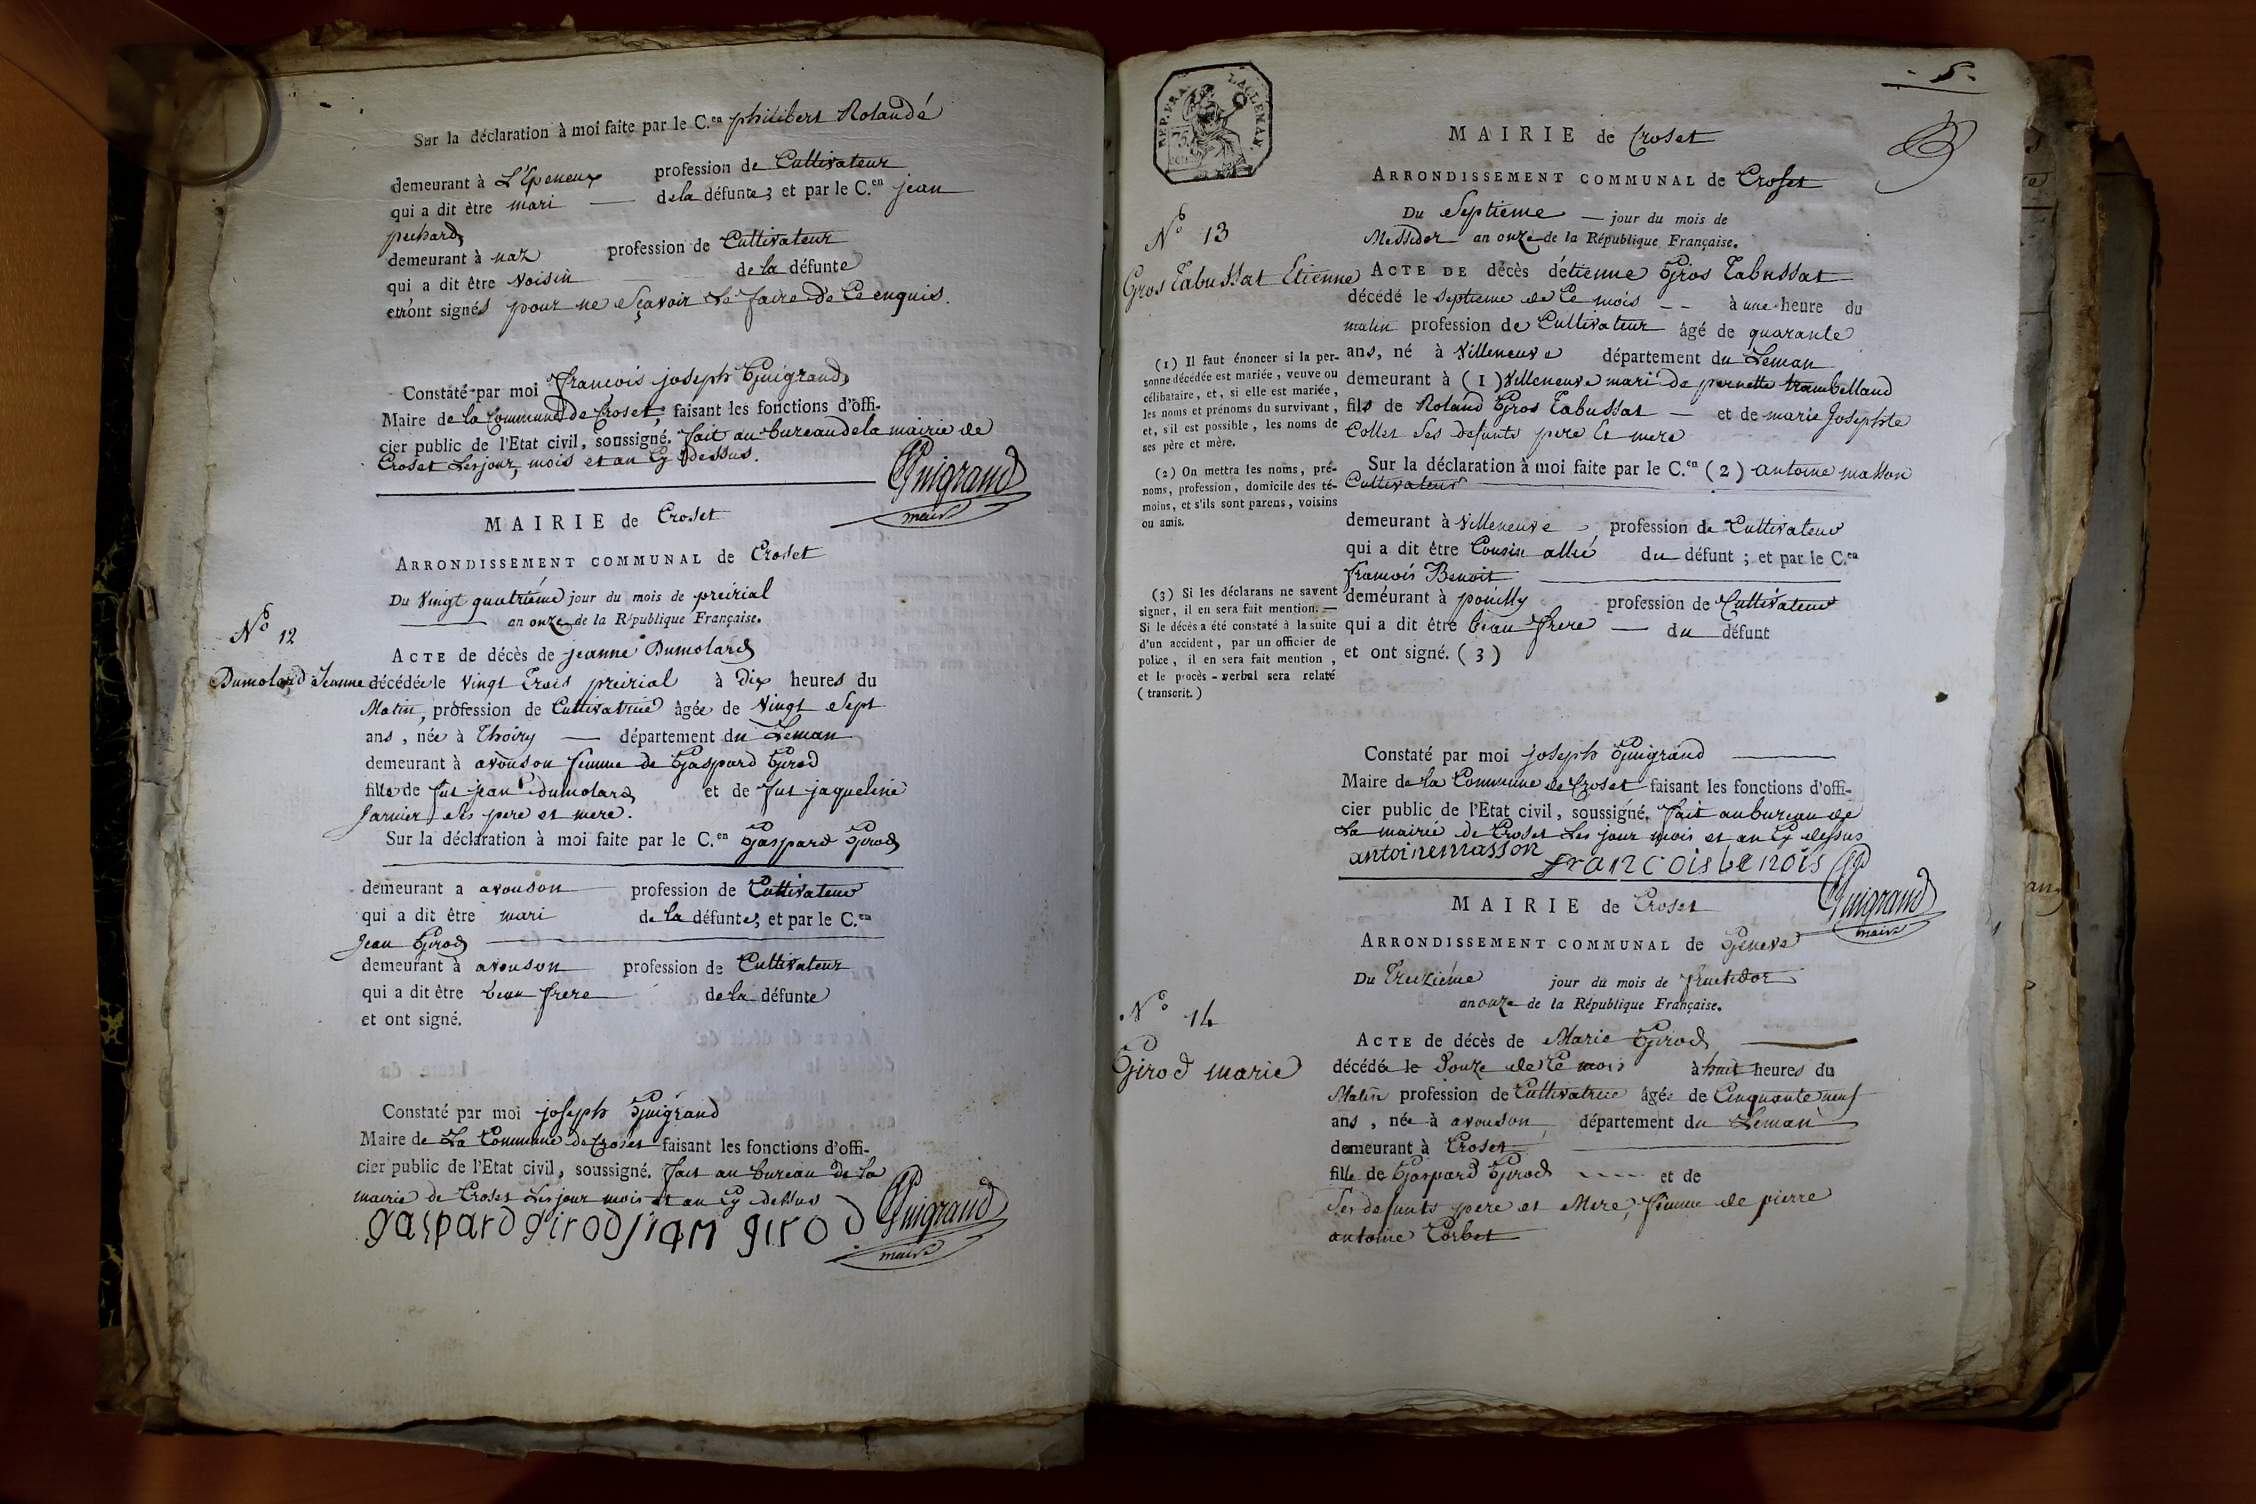 Sur la déclaration à moi faite par le C.en philibert Rolandé
demeurant à L'Epeneux profession de Cultivateur
qui a dit être mari — de la défunte; et par le C.en jean
pechard
demeurant à naz profession de Cultivateur
qui a dit être voisin de la défunte
et n'ont signés pour ne sçavoir le faire de Ce enquis.
Constaté par moi francois joseph Guigrand
Maire de la Commune de Croset, faisant les fonctions d'offi-
cier public de l'Etat civil, soussigné. fait au bureau de la mairie de
Croset Les jour, mois et an Cy dessus.
Guigrand
maire
MAIRIE de Croset
ARRONDISSEMENT COMMUNAL de Croset
Du vingt quatriéme jour du mois de preirial
an onze de la République Française.
N° 12
ACTE de décès de jeanne Dumolard
Dumolard Jeanne
décédée le vingt trois preirial à dix heures du
Matin, profession de Cultivatrice âgée de vingt sept
ans, née à Thoiry — département du Leman
demeurant à avouson femme de Gaspard Girod
fille de fut jean Dumolard et de fut jaqueline
Jarnier ses pere et mere.
Sur la déclaration à moi faite par le C.en Gaspard Girod
demeurant a avouson profession de Cultivateur
qui a dit être mari de la défunte; et par le C.en
Jean Girod
demeurant à avouson profession de Cultivateur
qui a dit être beau frere de la défunte
et ont signé.
Constaté par moi joseph Guigrand
Maire de La Commune de Croset faisant les fonctions d'offi-
cier public de l'Etat civil, soussigné. fait au bureau de la
mairie de Croset Les jour mois et an Cy dessus
gaspard girod jian girod Guigrand
maire
- 5 -
REP. FRA.
MAIRIE de Croset
ARRONDISSEMENT COMMUNAL de Croset
Du Septieme — jour du mois de
Messidor an onze de la République Française.
N° 13
Gros Tabussat Etienne
ACTE DE décès d'étienne Gros Tabussat
décédé le septieme de Ce mois — à une heure du
matin profession de Cultivateur âgé de quarante
ans, né à villeneuve département du Leman
demeurant à (1) villeneuve mari de pernette trambelland
fils de Roland Gros Tabussat — et de marie Josephte
Collet ses defunts pere et mere
Sur la déclaration à moi faite par le C.en (2) antoine masson
Cultivateur
demeurant à villeneuve, profession de Cultivateur
qui a dit être Cousin allié du défunt; et par le C.en
francois Benoit
demeurant à pouilly profession de Cultivateur
qui a dit être beau frere — du défunt
et ont signé. (3)
(1) Il faut énoncer si la per-
sonne décédée est mariée, veuve ou
célibataire, et, si elle est mariée,
les noms et prénoms du survivant,
et, s'il est possible, les noms de
ses père et mère.
(2) On mettra les noms, pré-
noms, profession, domicile des té-
moins, et s'ils sont parens, voisins
ou amis.
(3) Si les déclarans ne savent
signer, il en sera fait mention. —
Si le décès a été constaté à la suite
d'un accident, par un officier de
police, il en sera fait mention,
et le procès-verbal sera relaté
(transcrit.)
Constaté par moi joseph Guigrand
Maire de la Commune de Croset faisant les fonctions d'offi-
cier public de l'Etat civil, soussigné. fait au bureau de
La mairie de Croset Les jour mois et an Cy dessus
antoinemasson francoisbenois
Guigrand
maire
MAIRIE de Croset
ARRONDISSEMENT COMMUNAL de Geneve
Du Treizième jour du mois de fructidor
an onze de la République Française.
N° 14
Girod marie
ACTE de décès de Marie Girod
décédé le Douze de Ce mois à huit heures du
Matin profession de Cultivatrice âgée de Cinquante neuf
ans, née à avouson, département du Leman
demeurant à Croset
fille de Gaspard Girod ---- et de
Ses defunts pere et Mere, femme de pierre
antoine Corbet